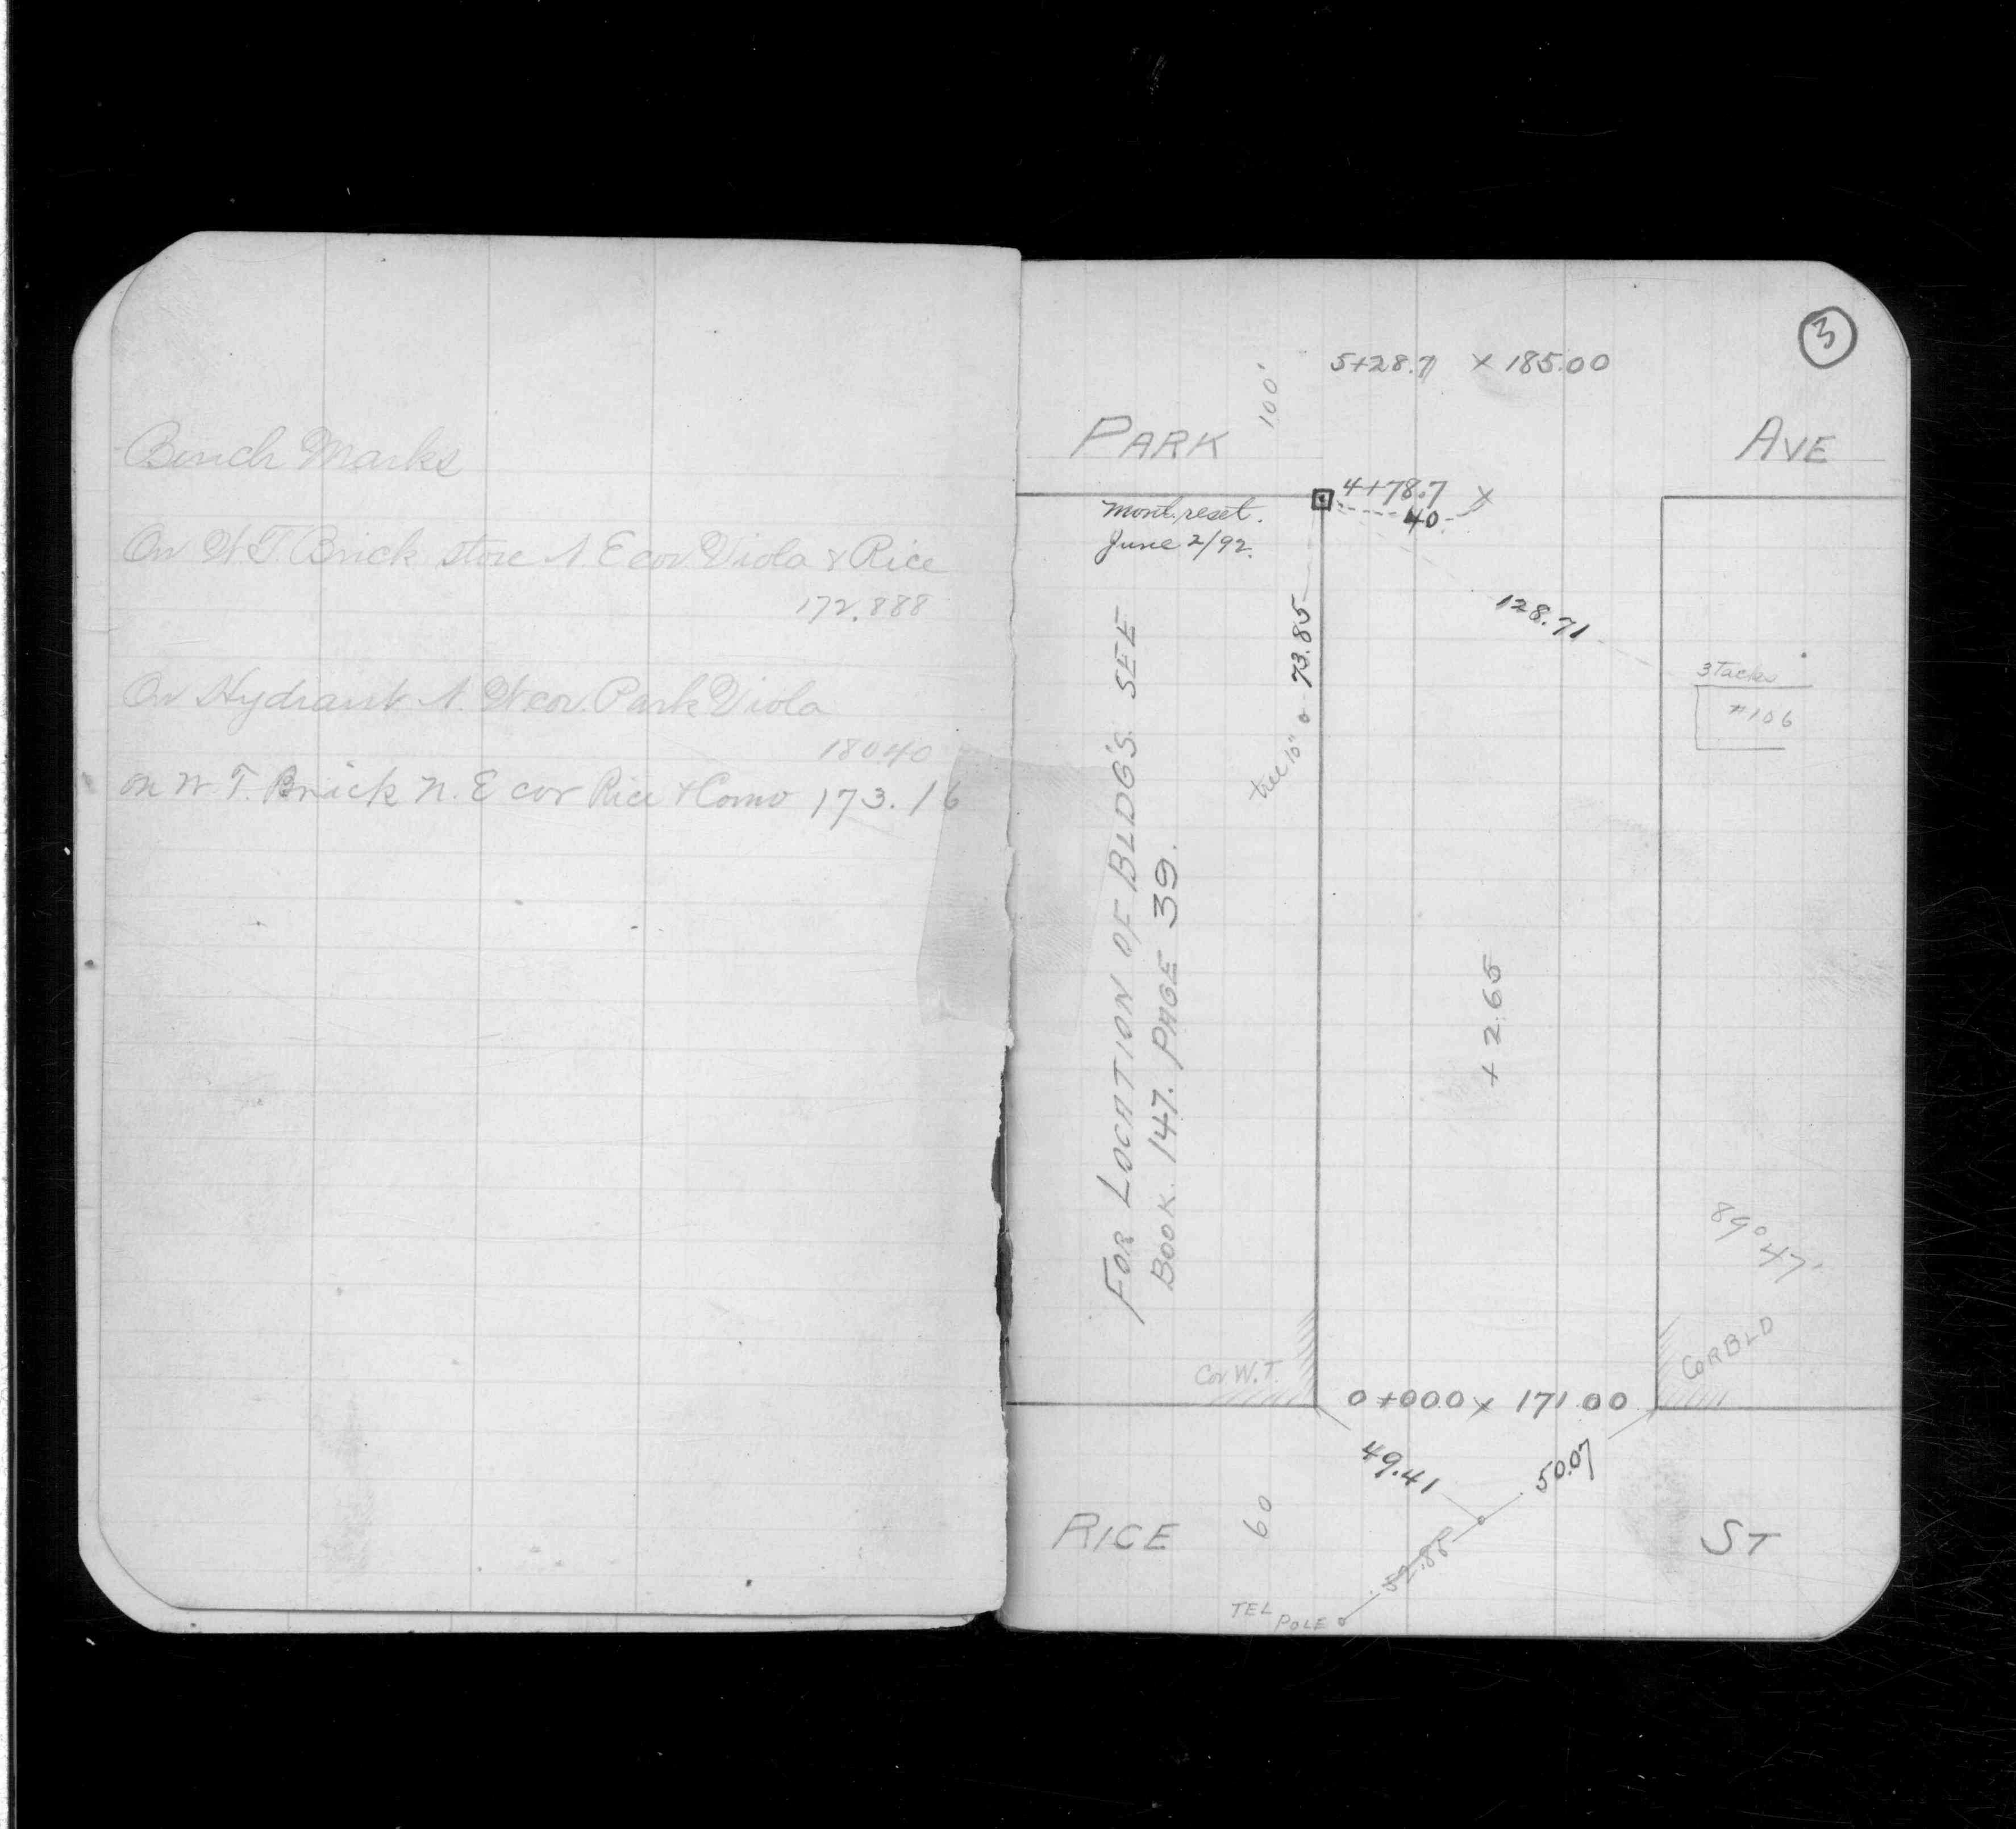 Bench Marks
On W.T. Brick store N. E cor. Viola & Rice
172.888
On Hydrant N. W cor. Park Viola
180.40
on W. T. Brick N. E cor Rice & Como 173.16
3
5+28.7 x 185.00
100'
PARK AVE
4+78.7 x
40
Mont. reset.
June 2/92.
128.71
73.85
tree 10"
3 Tacks
#106
FOR LOCATION OF BLDG'S. SEE
BOOK. 147. PAGE 39.
+ 2.65
89° 47'
Cor W.T.
COR BLD
0+000 x 171.00
49.41
50.07
RICE 60 ST
52.88
TEL
POLE